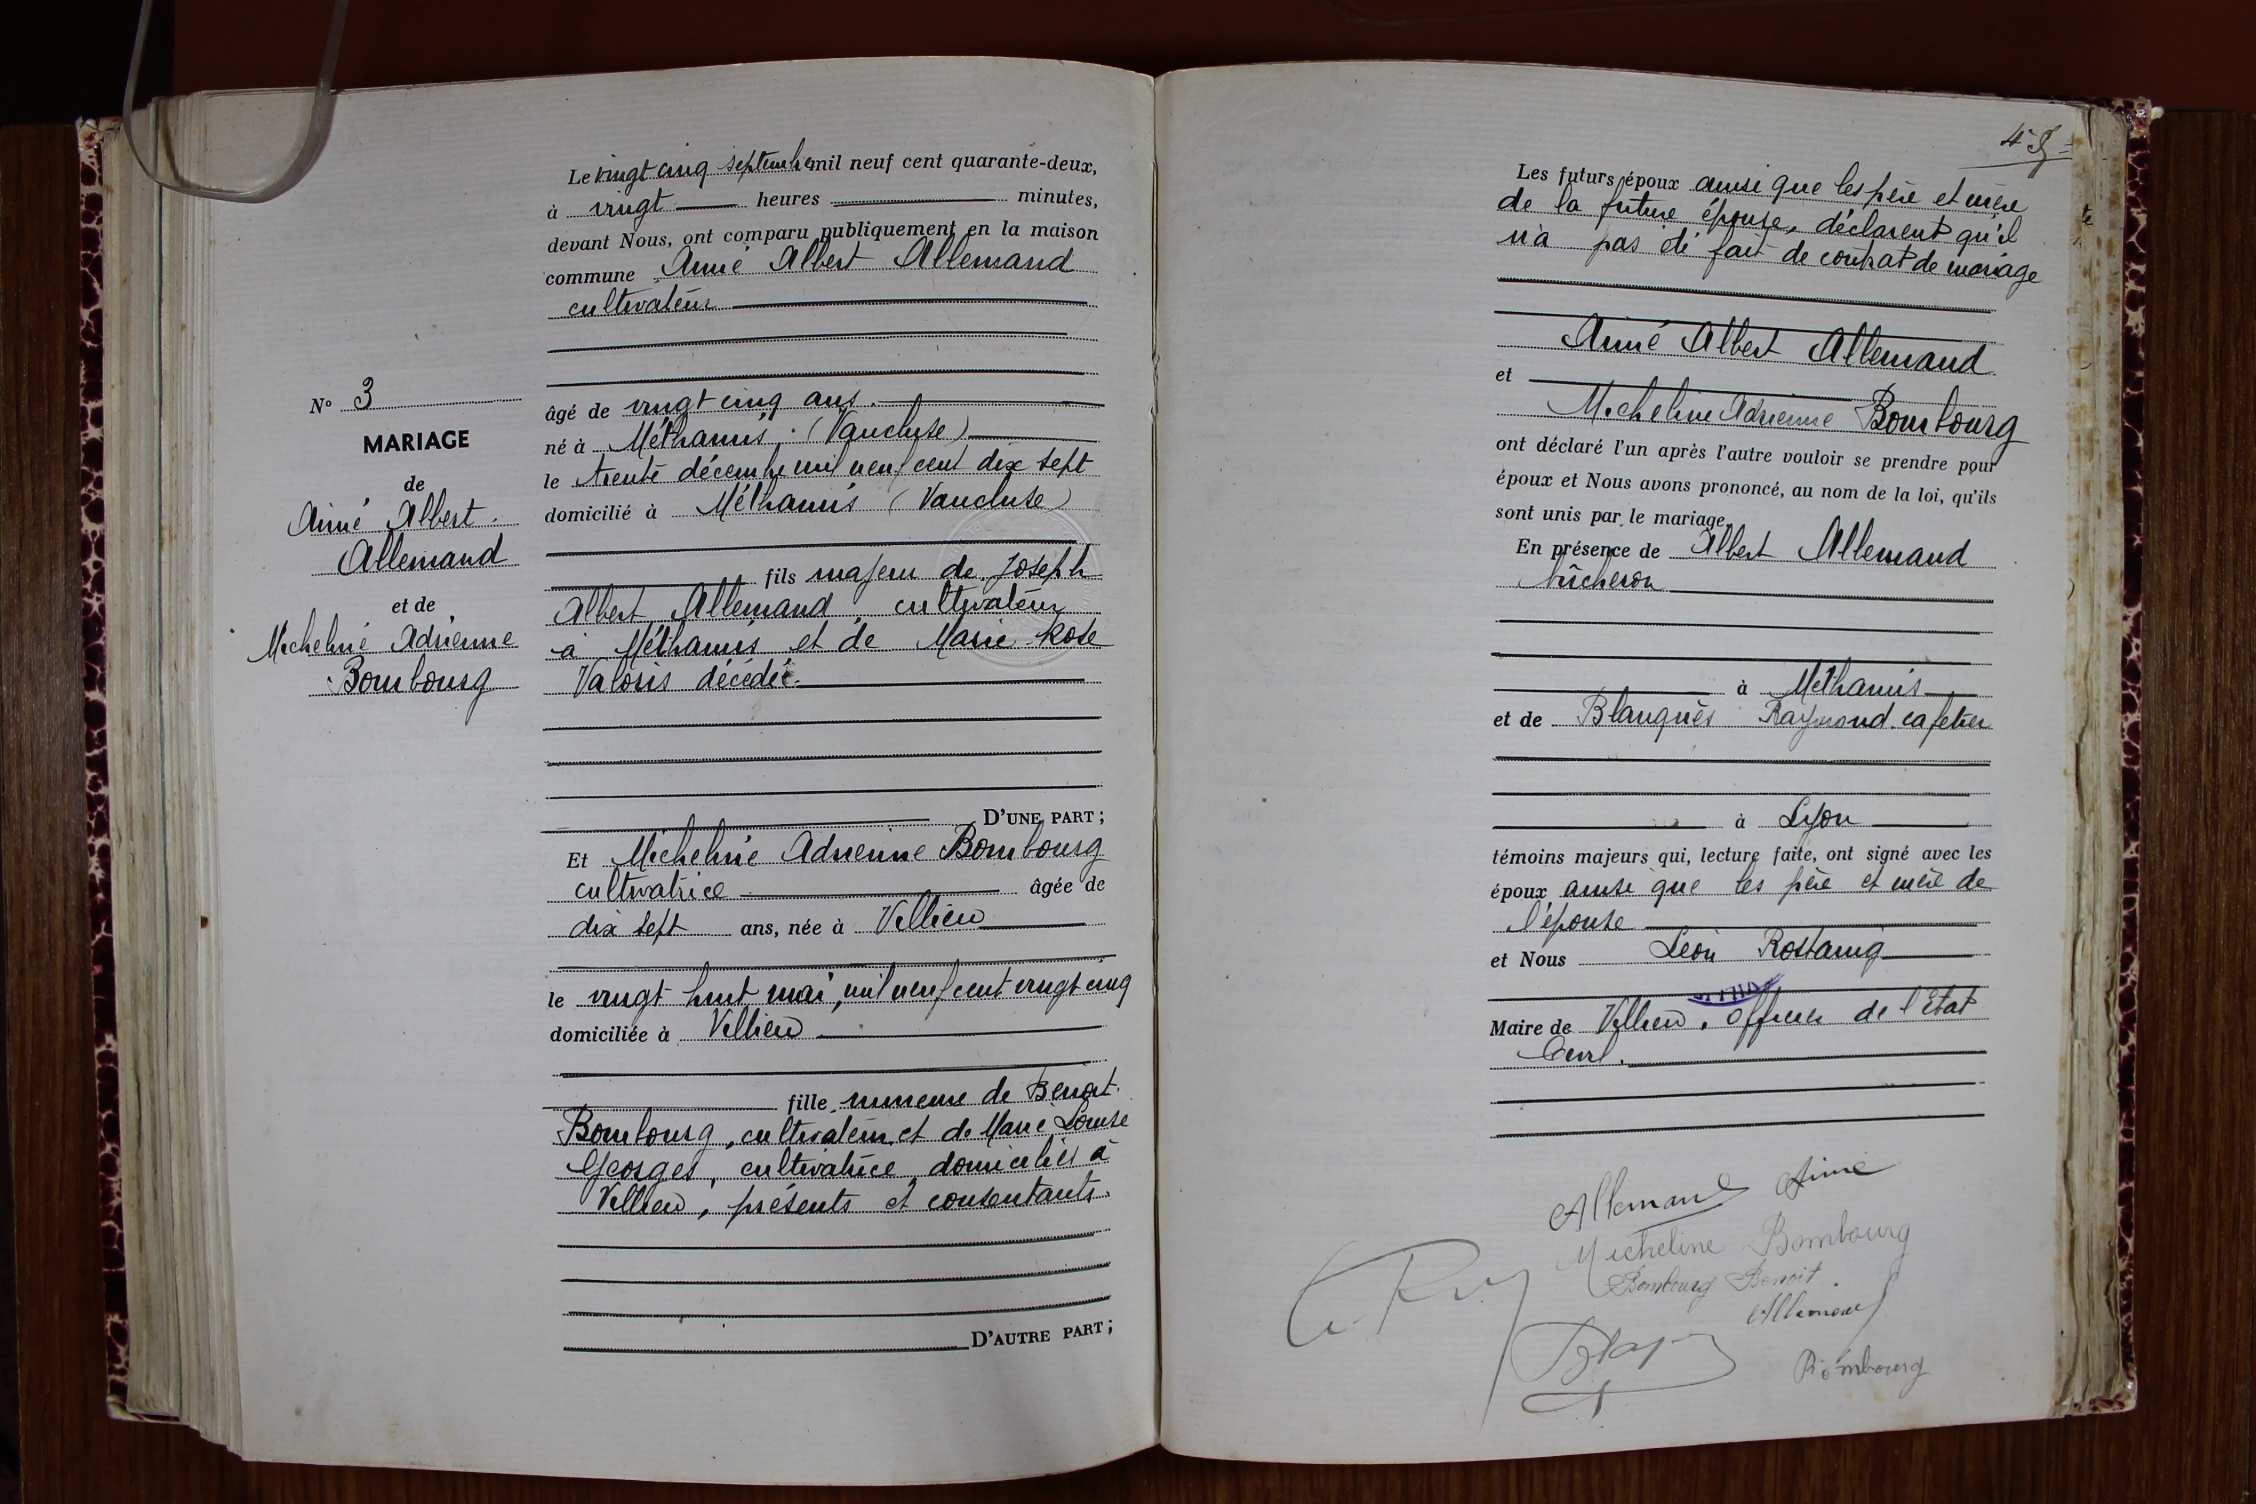 Le vingt cinq septembre mil neuf cent quarante-deux,
à vingt heures minutes,
devant Nous, ont comparu publiquement en la maison
commune Aimé Albert Allemand
cultivateur
N° 3
MARIAGE
de
Aimé Albert
Allemand
et de
Micheline Adrienne
Bombourg
âgé de vingt cinq ans.
né à Méthamis. (Vaucluse)
le trente décembre mil neuf cent dix sept
domicilié à Méthamis (Vaucluse)
fils majeur de Joseph
Albert Allemand, cultivateur
à Méthamis et de Marie Rose
Valoris décédée.
D'UNE PART ;
Et Micheline Adrienne Bombourg
cultivatrice âgée de
dix sept ans, née à Villieu
le vingt huit mai, mil neuf cent vingt cinq
domiciliée à Villieu
fille mineure de Benoit
Bombourg, cultivateur et de Marie Louise
Georges, cultivatrice, domiciliés à
Villieu, présents et consentants.
D'AUTRE PART ;
Les futurs époux ainsi que les père et mère
de la future épouse, déclarent qu'il
n'a pas été fait de contrat de mariage
Aimé Albert Allemand
et
Micheline Adrienne Bombourg
ont déclaré l'un après l'autre vouloir se prendre pour
époux et Nous avons prononcé, au nom de la loi, qu'ils
sont unis par le mariage.
En présence de Albert Allemand
bûcheron
à Méthamis
et de Blanquès Raymond cafetier
à Lyon
témoins majeurs qui, lecture faite, ont signé avec les
époux ainsi que les père et mère de
l'épouse
et Nous Léon Rostaing
Maire de Villieu. Officier de l'Etat
Civil.
Allemand Aimé
Micheline Bombourg
Bombourg Benoit.
Allemand
Bombourg